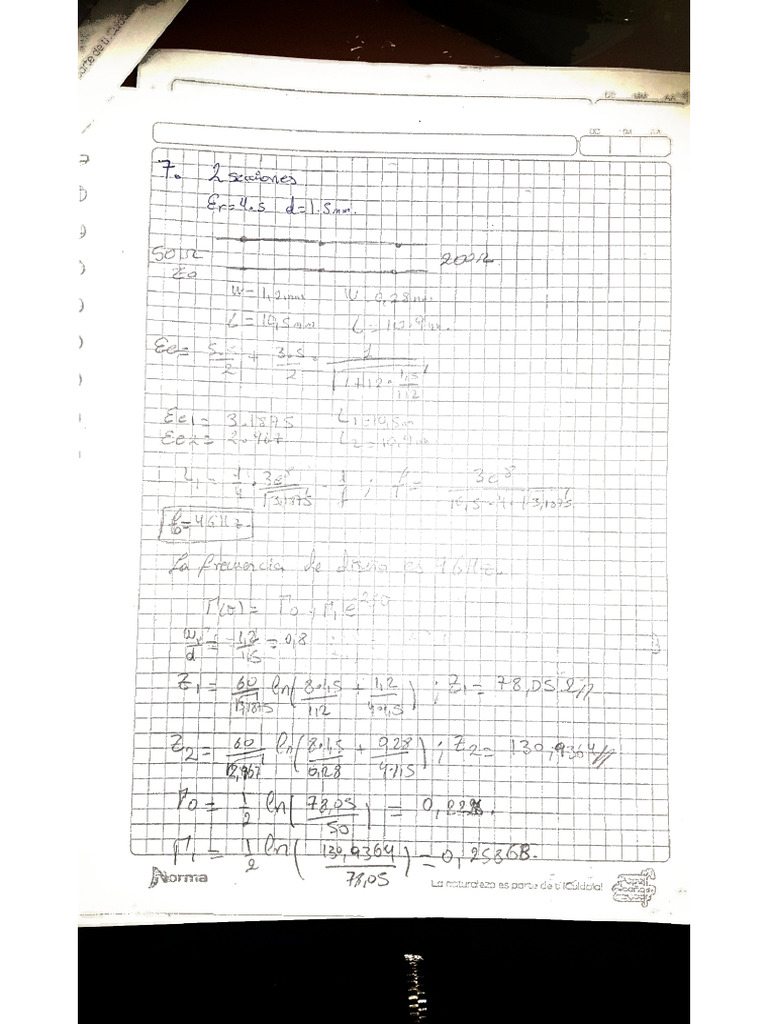 arte de ti ¡Cuída
DD MM AA
DD MM AA
7. 2 secciones
Er=4.5 d=1.5mm.
50Ω 200Ω.
Zo
W=1,2mm W=0,28mm.
L=10,5mm L=10.9m.
Ee= 5.5/2 + 3.5/2 · 1/√(1+12·1,5/1,2)
Ee1= 3.1875 L1=10,5m
Ee2= 2.967 L2=10,9m
L1= 1/4 · 3e8/√3,1875 · 1/f ; f= 3e8/10,5·4·√3,1875
f=4GHz.
La frecuencia de diseño es 4GHz.
W1/d = 1,2/1.5 = 0,8
Z1= 60/√3,1875 ln(8·1.5/1,2 + 1,2/4·1,5) ; Z1= 78,05Ω//
Z2= 60/√2,967 ln(8·1.5/0,28 + 0,28/4·1,5) ; Z2= 130,9364//
Γ0= 1/2 ln(78,05/50) = 0,222.
Γ1= 1/2 ln(130,9364/78,05) = 0,25868.
Norma
La naturaleza es parte de ti ¡Cuídala!